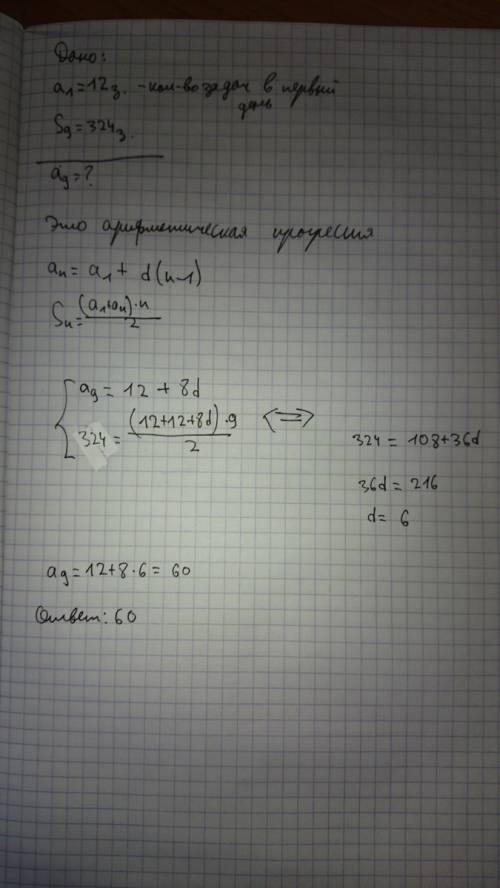 Дано:
a₁=12з. - кол-во задач в первый
день
S₉=324з.
a₉=?
Это арифметическая прогрессия
aₙ = a₁ + d(n-1)
Sₙ = (a₁+aₙ)·n / 2
{ a₉ = 12 + 8d
324 = (12+12+8d)·9 / 2 <=>
324 = 108+36d
36d = 216
d = 6
a₉ = 12+8·6 = 60
Ответ: 60